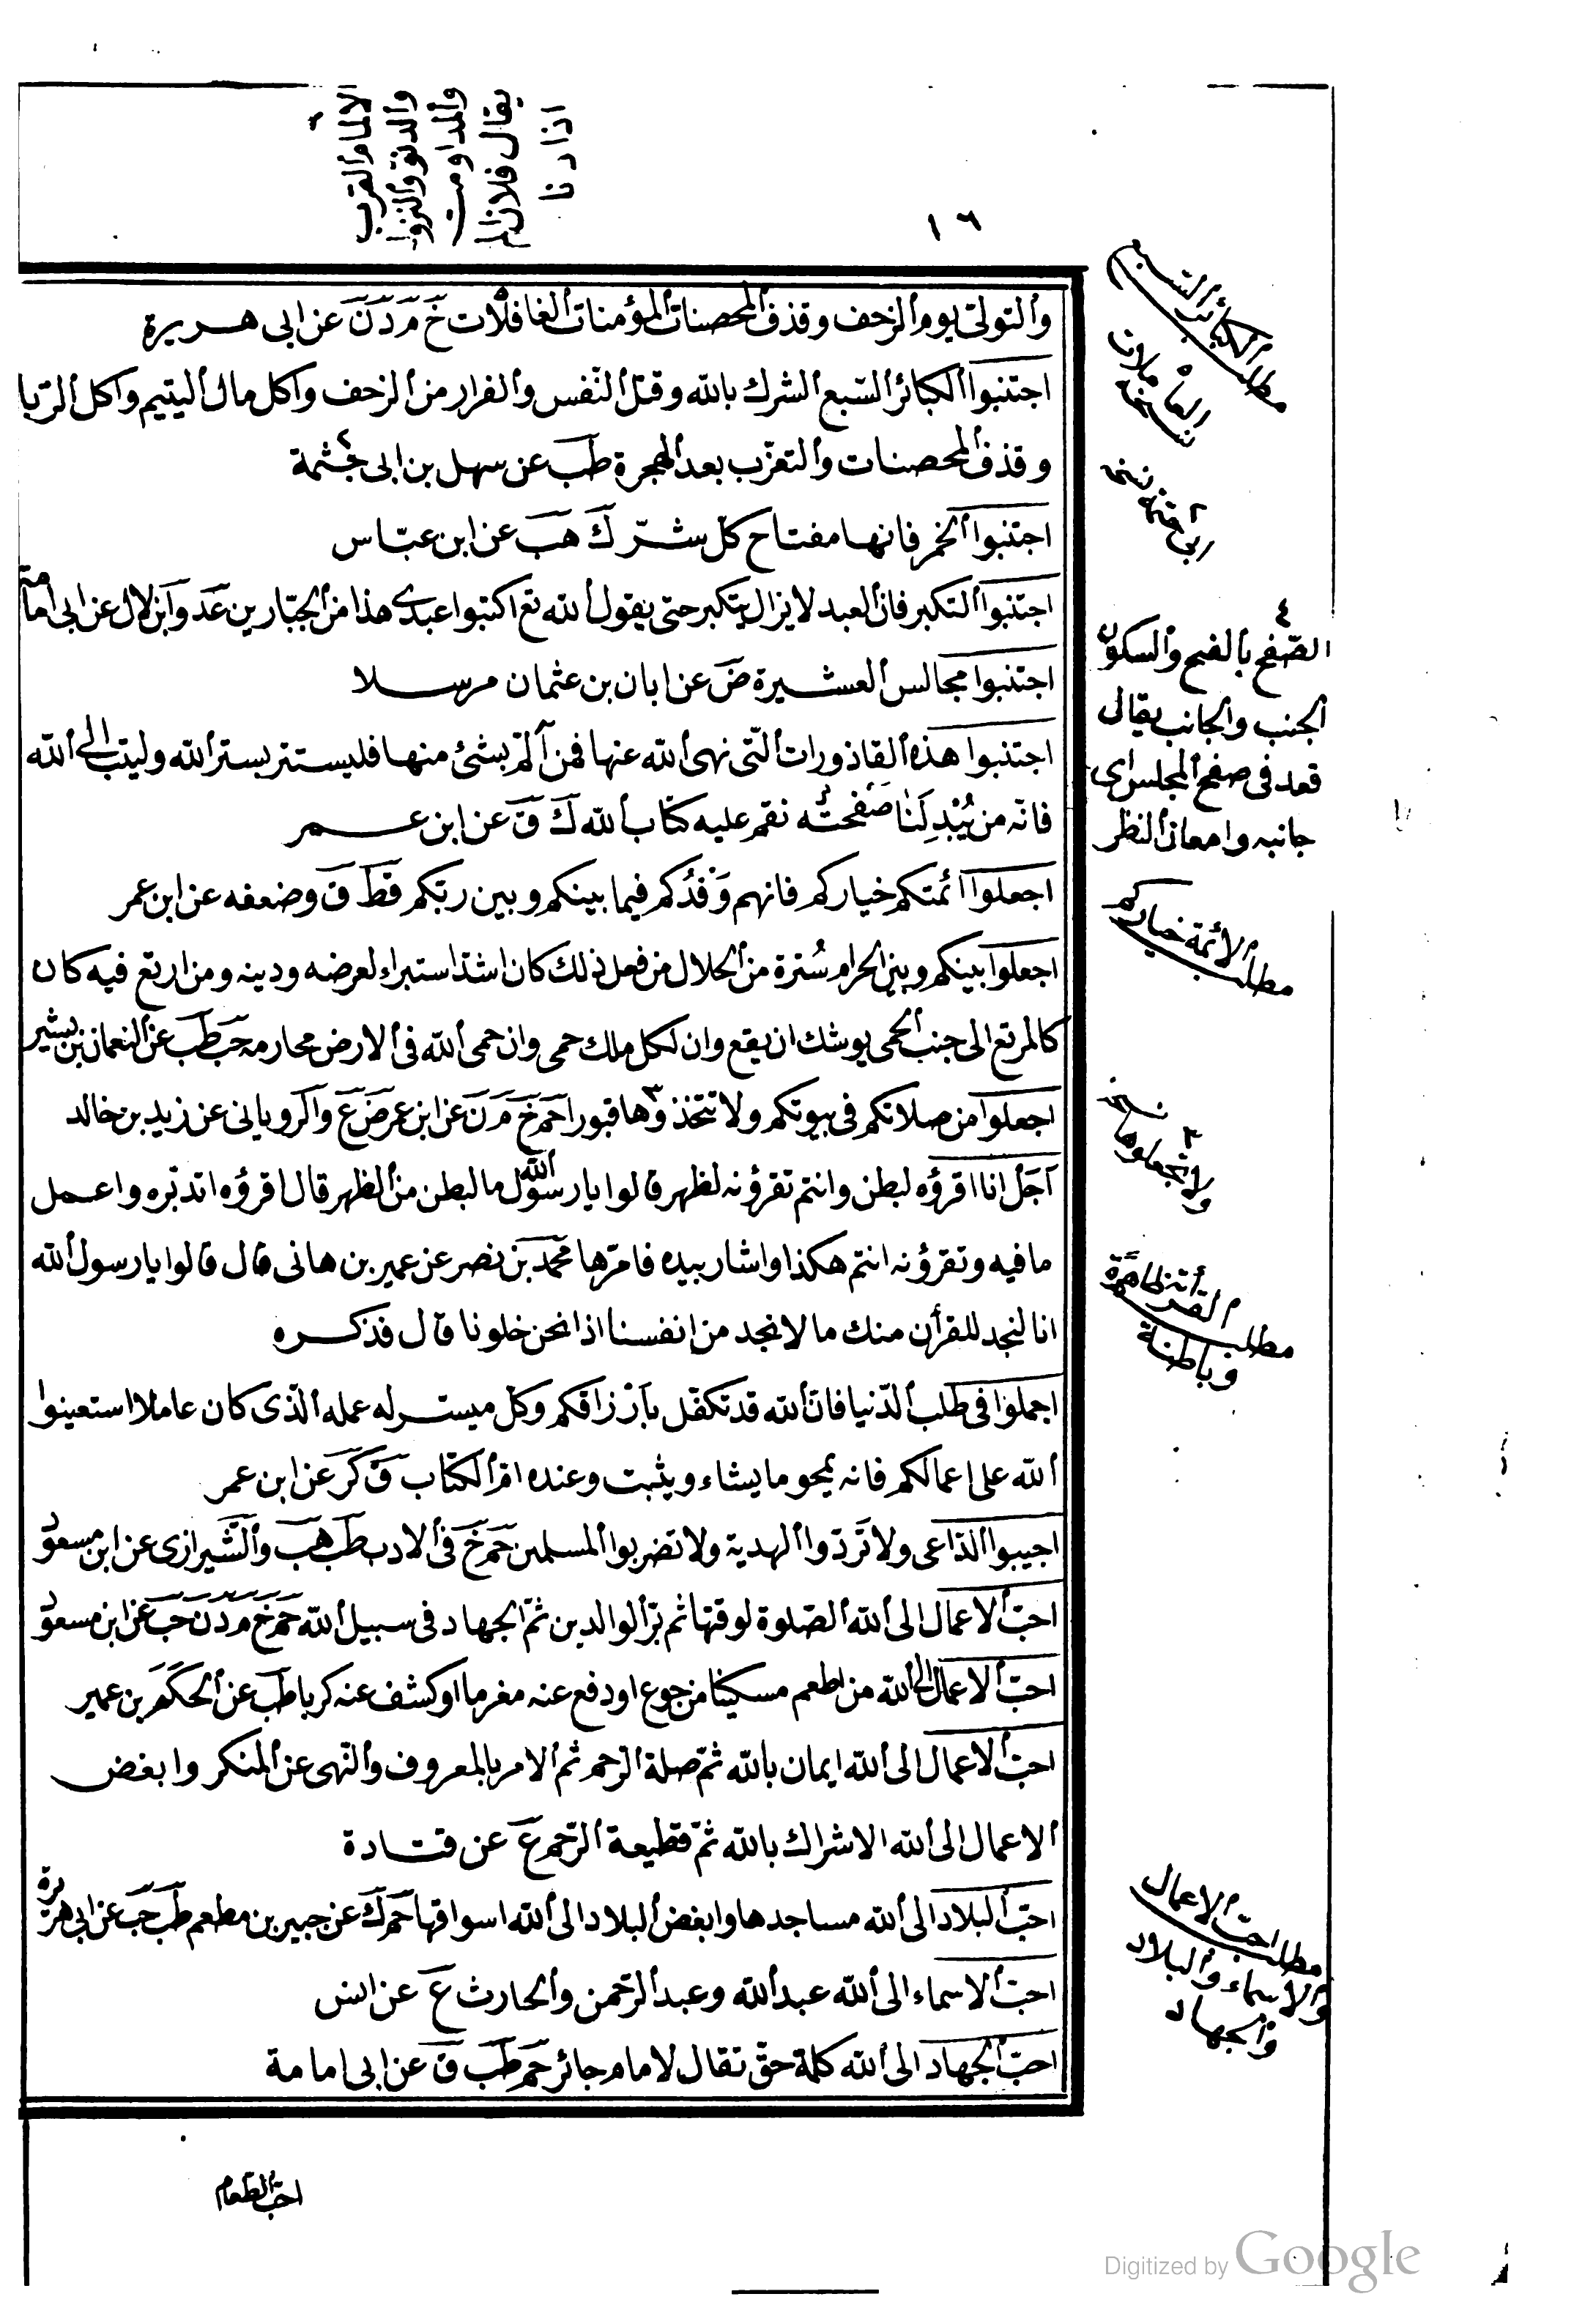 ١٦
الالمام القرب
والدنو والنزول
والمداومت
يقال فلان الم
اذا دنا
والتولى يوم الزحف وقذف المحصنات المؤمنات الغافلات خ م د ن عن ابى هريرة
اجتنبوا الكبائر السبع الشرك بالله وقتل النفس والفرار من الزحف واكل مال اليتيم واكل الربا
وقذف المحصنات والتعرب بعد الهجرة طب عن سهل بن ابى خثمة
اجتنبوا الخمر فانها مفتاح كل شر ك هب عن ابن عباس
اجتنبوا التكبر فان العبد لا يزال يتكبر حتى يقول الله تع اكتبوا عبدى هذا من الجبارين عد وابن لال عن ابى امامة
اجتنبوا مجالس العشيرة ض عن ابان بن عثمان مرسلا
اجتنبوا هذه القاذورات التى نهى الله عنها فمن الم بشئ منها فليستتر بستر الله وليتب الى الله
فانه من يُبْدِ لَنَا صَفْحَتُه نقم عليه كتاب الله ك ق عن ابن عمر
اجعلوا ائمتكم خياركم فانهم وَفْدُكم فيما بينكم وبين ربكم قط ق وضعفه عن ابن عمر
اجعلوا بينكم وبين الحرام سُترة من الحلال من فعل ذلك كان اشد استبراء لعرضه ودينه ومن ارتع فيه كان
كالمرتع الى جنب الحمى يوشك ان يقع وان لكل ملك حمى وان حمى الله فى الارض محارمه حب طب عن النعمان بن بشير
اجعلوا من صلاتكم فى بيوتكم ولا تتخذوها قبورا حم خ م ن عن ابن عمر ض ع والرويانى عن زيد بن خالد
اَجَل انا اقرؤه لبطن وانتم تقرؤنه لظهر قالوا يا رسول الله ما البطن من الظهر قال اقرؤه اتدبره واعمل
ما فيه وتقرؤنه انتم هكذا واشار بيده فامرها محمد بن نصر عن عمير بن هانى قال قالوا يا رسول الله
انا لنجد للقرأن منك ما لا نجد من انفسنا اذا نحن خلونا قال فذكره
اجملوا فى طلب الدنيا فان الله قد تكفل بأرزاقكم وكل ميسر له عمله الذى كان عاملا استعينوا
الله على اعمالكم فانه يمحو ما يشاء ويثبت وعنده ام الكتاب ق كر عن ابن عمر
اجيبوا الداعى ولا تَردوا الهدية ولا تضربوا المسلمين حم خ فى الادب طب هب والشيرازى عن ابن مسعود
احب الاعمال الى الله الصلوة لوقتها ثم بر الوالدين ثم الجهاد فى سبيل الله حم خ م د ن حب عن ابن مسعود
احب الاعمال الى الله من اطعم مسكينا من جوع او دفع عنه مغرما او كشف عنه كربا طب عن الحكم بن عمير
احب الاعمال الى الله ايمان بالله ثم صلة الرحم ثم الامر بالمعروف والنهى عن المنكر وابغض
الاعمال الى الله الاشراك بالله ثم قطيعة الرحم ع عن قتادة
احب البلاد الى الله مساجدها وابغض البلاد الى الله اسواقها حم ك عن جبير بن مطعم طب حب عن ابى هريرة
احب الاسماء الى الله عبد الله وعبد الرحمن والحارث ع عن انس
احب الجهاد الى الله كلمة حق تقال لامام جائر حم طب ق عن ابى امامة
مطلب الكبائر السبع
الغاملات
نسخه
ابى حثمه نسخه
٤
الصفح بالفتح والسكون
الجنب والجانب يقال
قعد فى صفح المجلس اى
جانبه وامعان النظر
مطلب الائمة خياركم
٣ نسخه
ولا تجعلوها
مطلب القرأن ظاهرة
وباطنة
مطلب احب الاعمال
والاسماء والبلاد
والجهاد
احب الطعام
Digitized by Google